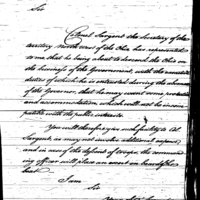 Sir
Colonel Sargent the Secretary of the
territory North west of the Ohio has represented
to me that he being about to descend the Ohio on
the business of the Government, with the
duties of which he is entrusted during the absence
of the Governor, that he may want some
and accommodation which will not be incom-
patible with the public interests.
You will therefore furnish to Col.
Sargent, as may not involve additional expence,
and in case of the of troops, the command-
ing officer will place an escort on board of his
boat.
I am
Sir